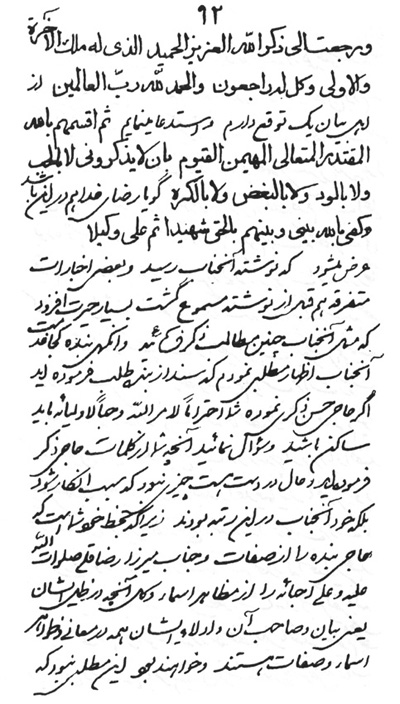 ٩٢
و رجعت الی ذکر الله العزیز الحمید الذی له ملک الآخرة
والاولی وکل له راجعون والحمد لله ربّ العالمین از
اهل بیان یک توقع دارم و استدعا مینمایم ثم اقسمهم بالله
المقتدر المتعالی المهیمن القیوم بان لا یذکرونی لا بالحب
ولا بالود ولا بالبغض ولا بالکره گویا رضای خدا هم در این باشد
وکفی بالله بینی و بینهم بالحق شهیدا ثم علی وکیلا
عرض میشود که نوشته آنجناب رسید و بعضی اخبارات
متفرقه هم قبل از نوشته مسموع گشت بسیار حیرت افزود
که مثل آنجناب چنین مطالب ذکر و آنکه بنده کجا قصد
آنجناب اظهار مطلبی نمودم که سند از بنده طلب فرموده اید
اگر حاجی حسن ذکری نموده شما احتراما لامر الله و حبا لاولیائه باید
ساکن باشید و سؤال نمائید آنچه شما از کلمات حاجی ذکر
فرموده اید و حال در دست هست چیزی نبود که سبب انکار شود
بلکه خود آنجناب در این رتبه بودند زیرا که بخط خود شما هست که
حاجی بنده را از صفات و جناب میرزا رضا قلی صلوات الله
علیه و علی آبائه را از مظاهر اسماء و کل آنچه در ظل ایشان
یعنی بیان و صاحب آن و ادلاء ایشان همه در معانی و ظواهر
اسماء و صفات هستند و خواهند بود این مطلبی نبود که